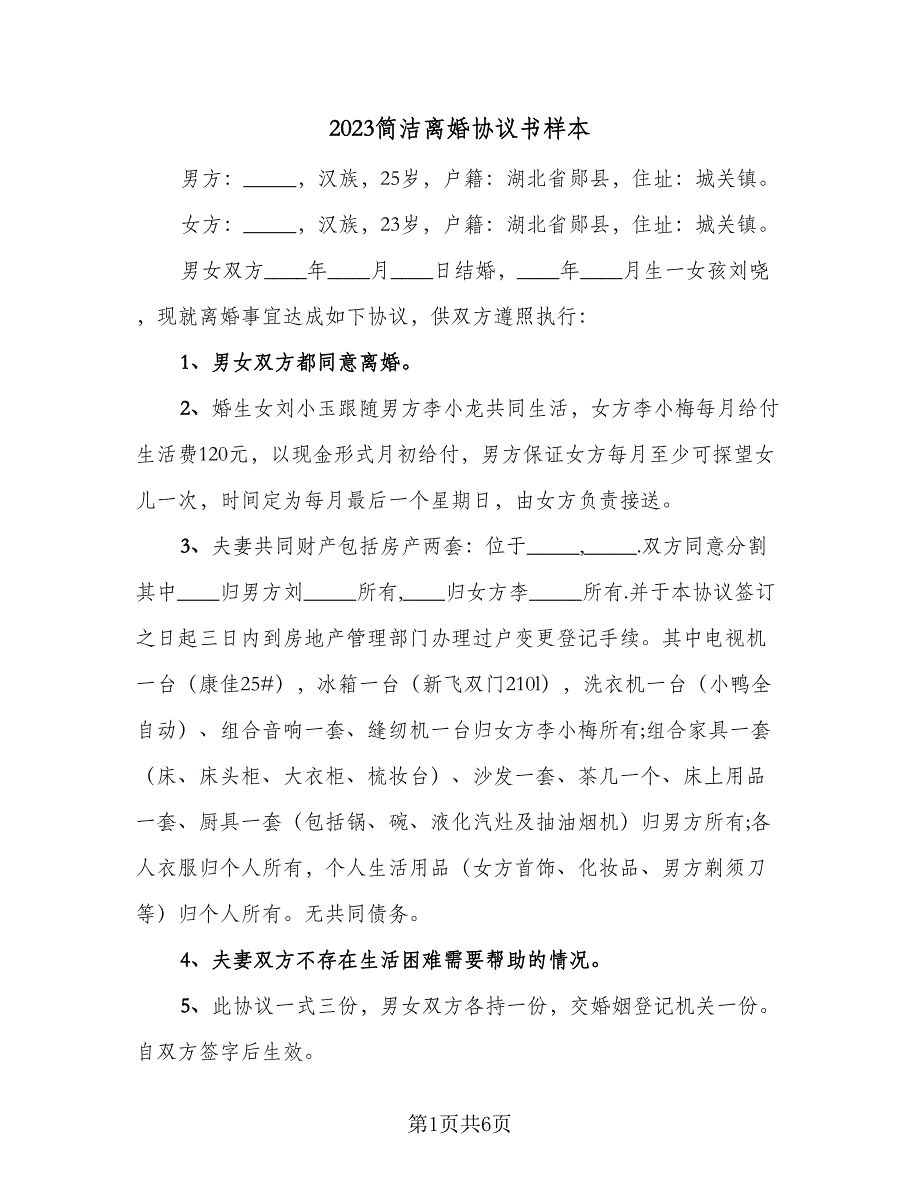 2023简洁离婚协议书样本
男方：_____，汉族，25岁，户籍：湖北省郧县，住址：城关镇。
女方：_____，汉族，23岁，户籍：湖北省郧县，住址：城关镇。
男女双方____年____月____日结婚，____年____月生一女孩刘哓
，现就离婚事宜达成如下协议，供双方遵照执行：
1、男女双方都同意离婚。
2、婚生女刘小玉跟随男方李小龙共同生活，女方李小梅每月给付
生活费120元，以现金形式月初给付，男方保证女方每月至少可探望女
儿一次，时间定为每月最后一个星期日，由女方负责接送。
3、夫妻共同财产包括房产两套：位于_____,_____.双方同意分割
其中____归男方刘_____所有,____归女方李_____所有.并于本协议签订
之日起三日内到房地产管理部门办理过户变更登记手续。其中电视机
一台（康佳25#），冰箱一台（新飞双门210l），洗衣机一台（小鸭全
自动）、组合音响一套、缝纫机一台归女方李小梅所有;组合家具一套
（床、床头柜、大衣柜、梳妆台）、沙发一套、茶几一个、床上用品
一套、厨具一套（包括锅、碗、液化汽灶及抽油烟机）归男方所有;各
人衣服归个人所有，个人生活用品（女方首饰、化妆品、男方剃须刀
等）归个人所有。无共同债务。
4、夫妻双方不存在生活困难需要帮助的情况。
5、此协议一式三份，男女双方各持一份，交婚姻登记机关一份。
自双方签字后生效。
第1页共6页